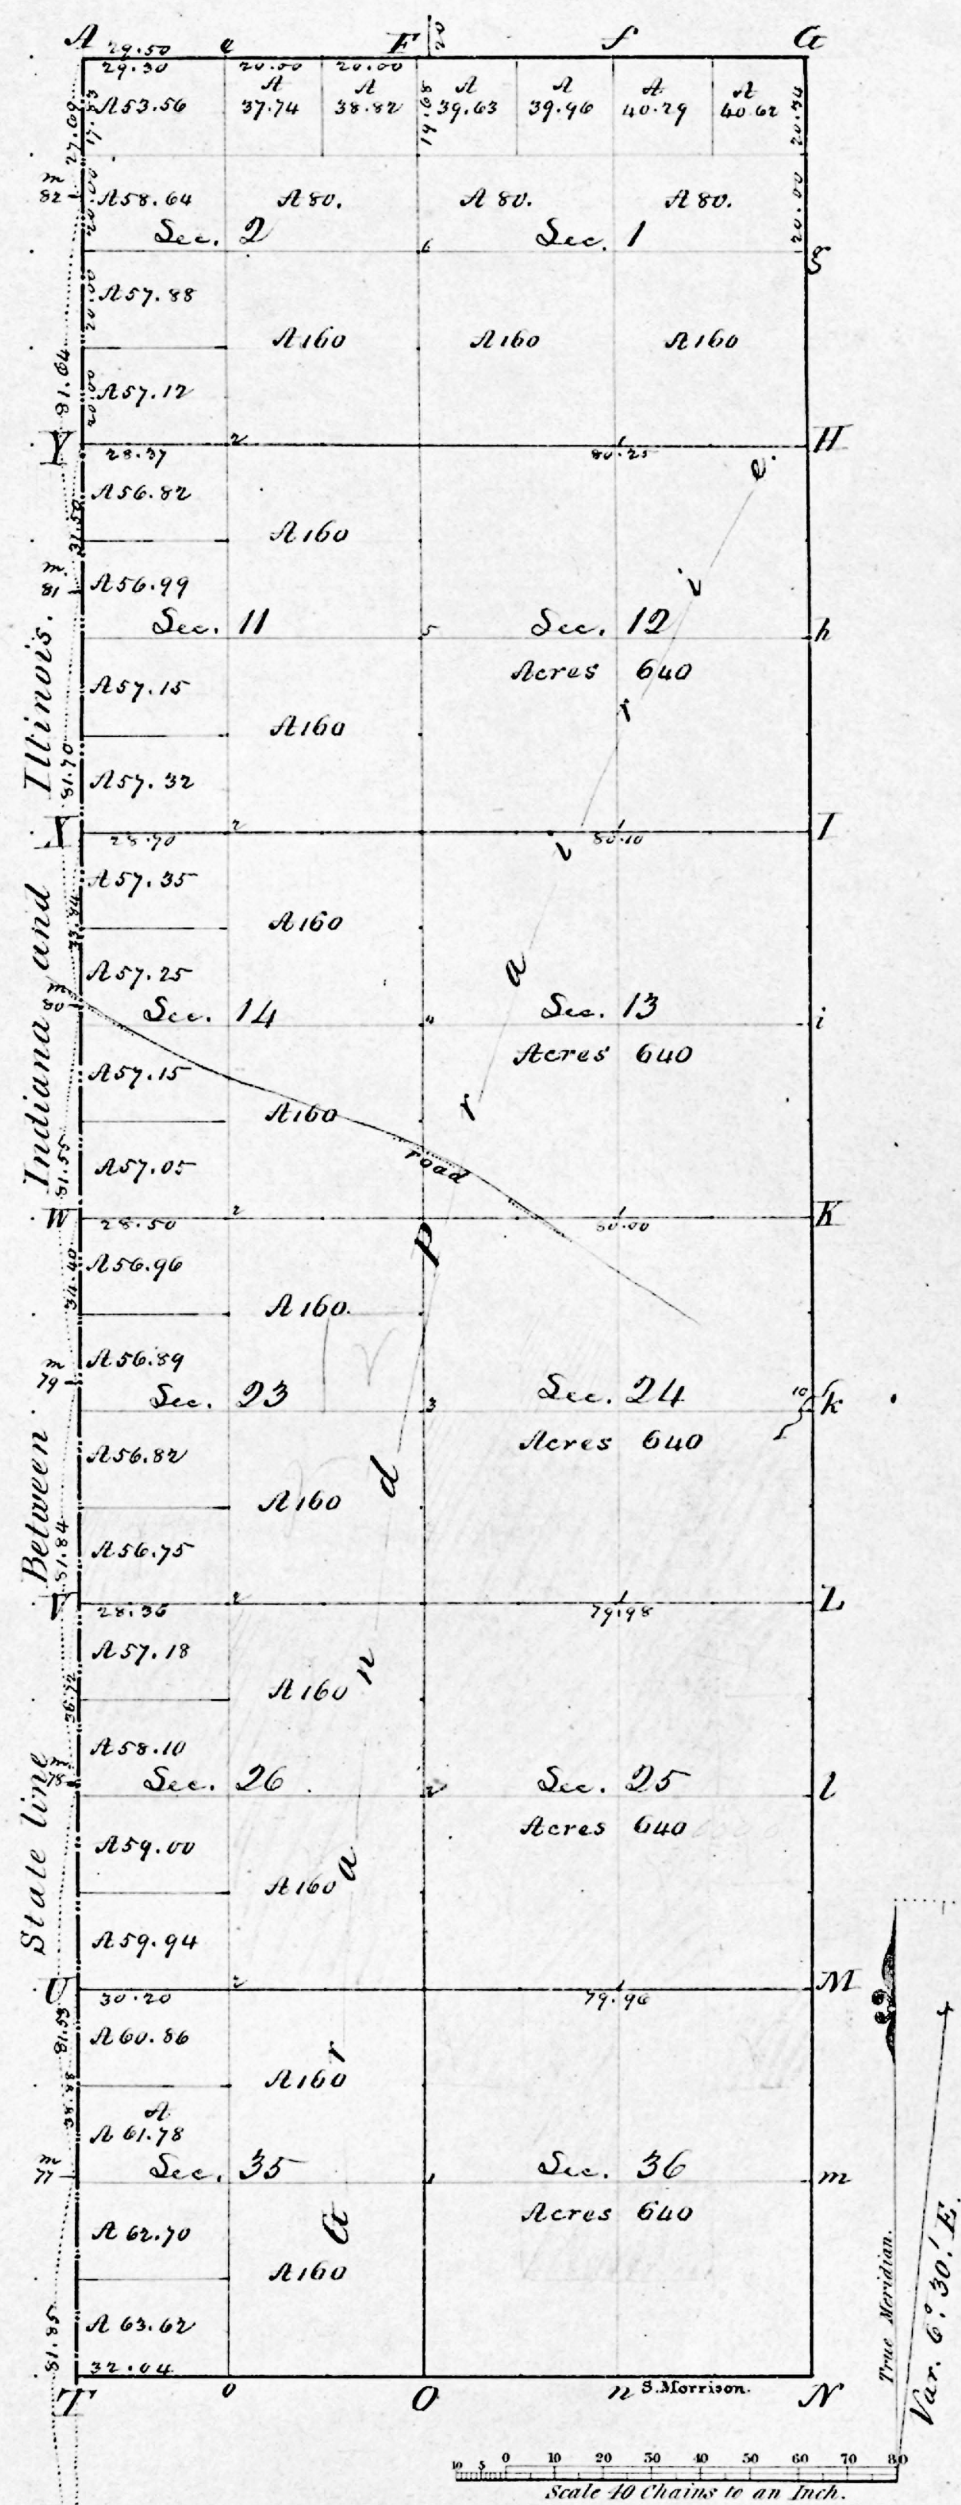 A 29.50 e F 20 f G
29.30 20.00 20.00
A A A A A A
A 53.56 37.74 38.82 39.63 39.96 40.29 40.62
27.09 17.53 19.68 20.34
m
82 A 58.64 A 80. A 80. A 80.
20.00 20.00
Sec. 2 6 Sec. 1 g
A 57.88
20.00
A 160 A 160 A 160
81.64 20.00
A 57.12
Y 2 1 H
28.37 80.25
A 56.82
31.50
A 160
m
81 A 56.99
Sec. 11 5 Sec. 12 h
Acres 640
A 57.15
A 160
81.70
A 57.32
X 2 1 I
28.70 80.10
A 57.35
33.84
A 160
A 57.25
m
80
Sec. 14 4 Sec. 13 i
Acres 640
A 57.15
A 160
road
81.55
A 57.05
W 2 1 K
28.50 80.00
A 56.96
34.40
A 160
A 56.89
m
79
Sec. 23 3 Sec. 24 10 k
5
Acres 640
A 56.82
A 160
81.84
A 56.75
V 2 1 L
28.36 79.98
A 57.18
A 160
A 58.10
m
78
Sec. 26 2 Sec. 25 l
Acres 640
A 59.00
A 160
A 59.94
U 2 1 M
30.20 79.96
81.53
A 60.86
A 160
38.88
A
A 61.78
m
77
Sec. 35 1 Sec. 36 m
Acres 640
A 62.70
A 160
A 63.62
81.85
32.04
T o O n S. Morrison. N
State line Between Indiana and Illinois.
Grand prairie
True Meridian.
Var. 6° 30.' E.
10 5 0 10 20 30 40 50 60 70 80
Scale 40 Chains to an Inch.